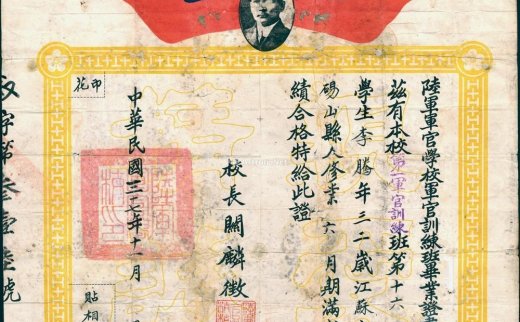 陸軍軍官學校軍官訓練班畢業證
茲有本校第二軍官訓練班第十六
學生李騰年三二歲江蘇
碭山縣人修業六月期滿
績合格特給此證
校長關麟徵
中華民國三十七年十一月
印花
字第叁壹陸號
貼相